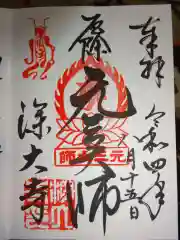 奉拝
令和四年
月十五日
元三大師
深大寺
元三大師